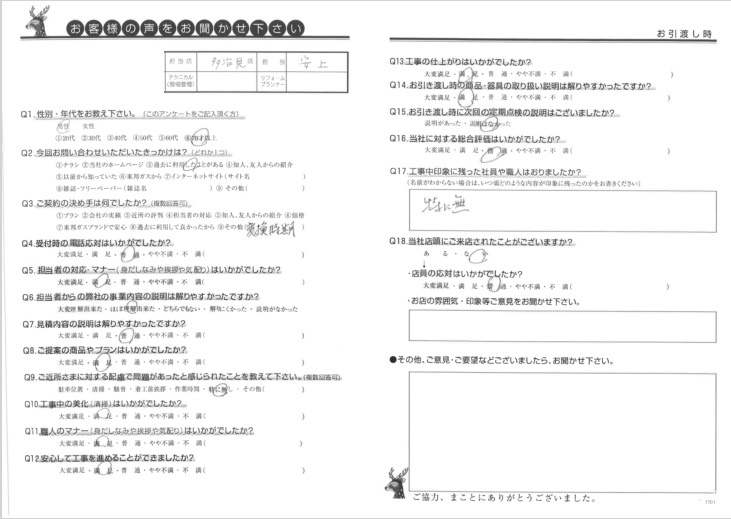 お客様の声をお聞かせ下さい
担当店 多治見店 担当 安上
テクニカル(現場管理) リフォームプランナー
Q1.性別・年代をお教え下さい。(このアンケートをご記入頂く方)
男性 女性
①20代 ②30代 ③40代 ④50代 ⑤60代 ⑥70才以上
Q2.今回お問い合わせいただいたきっかけは?(どれか1つ)
①チラシ ②当社のホームページ ③過去に利用したことがある ④知人、友人からの紹介
⑤以前から知っていた ⑥東邦ガスから ⑦インターネットサイト(サイト名 )
⑧雑誌・フリーペーパー(雑誌名 ) ⑨その他( )
Q3.ご契約の決め手は何でしたか?(複数回答可)
①プラン ②会社の実績 ③近所の評判 ④担当者の対応 ⑤知人、友人からの紹介 ⑥価格
⑦東邦ガスブランドで安心 ⑧過去に利用して良かったから ⑨その他(
Q4.受付時の電話応対はいかがでしたか?
大変満足・満 足・普 通・やや不満・不 満( )
Q5.担当者の対応・マナー(身だしなみや挨拶や気配り)はいかがでしたか?
大変満足・満 足・普 通・やや不満・不 満( )
Q6.担当者からの弊社の事業内容の説明は解りやすかったですか?
大変理解出来た・ほぼ理解出来た・どちらでもない・解りにくかった・説明がなかった
Q7.見積内容の説明は解りやすかったですか?
大変満足・満 足・普 通・やや不満・不 満( )
Q8.ご提案の商品やプランはいかがでしたか?
大変満足・満 足・普 通・やや不満・不 満( )
Q9.ご近所さまに対する配慮で問題があったと感じられたことを教えて下さい。(複数回答可)
駐車位置・清掃・騒音・着工前挨拶・作業時間・特に無し・その他( )
Q10.工事中の美化(清掃)はいかがでしたか?
大変満足・満 足・普 通・やや不満・不 満( )
Q11.職人のマナー(身だしなみや挨拶や気配り)はいかがでしたか?
大変満足・満 足・普 通・やや不満・不 満( )
Q12.安心して工事を進めることができましたか?
大変満足・満 足・普 通・やや不満・不 満( )
お引渡し時
Q13.工事の仕上がりはいかがでしたか?
大変満足・満 足・普 通・やや不満・不 満( )
Q14.お引き渡し時の商品・器具の取り扱い説明は解りやすかったですか?
大変満足・満 足・普 通・やや不満・不 満( )
Q15.お引き渡し時に次回の定期点検の説明はございましたか?
説明があった・説明はなかった
Q16.当社に対する総合評価はいかがでしたか?
大変満足・満 足・普 通・やや不満・不 満( )
Q17.工事中印象に残った社員や職人はおりましたか?
(名前がわからない場合は、いつ頃どのような内容が印象に残ったのかをお書きください)
特に無
Q18.当社店頭にご来店されたことがございますか?
ある・ない
↓
・店員の応対はいかがでしたか?
大変満足・満 足・普 通・やや不満・不 満( )
・お店の雰囲気・印象等ご意見をお聞かせ下さい。
●その他、ご意見・ご要望などございましたら、お聞かせ下さい。
ご協力、まことにありがとうございました。